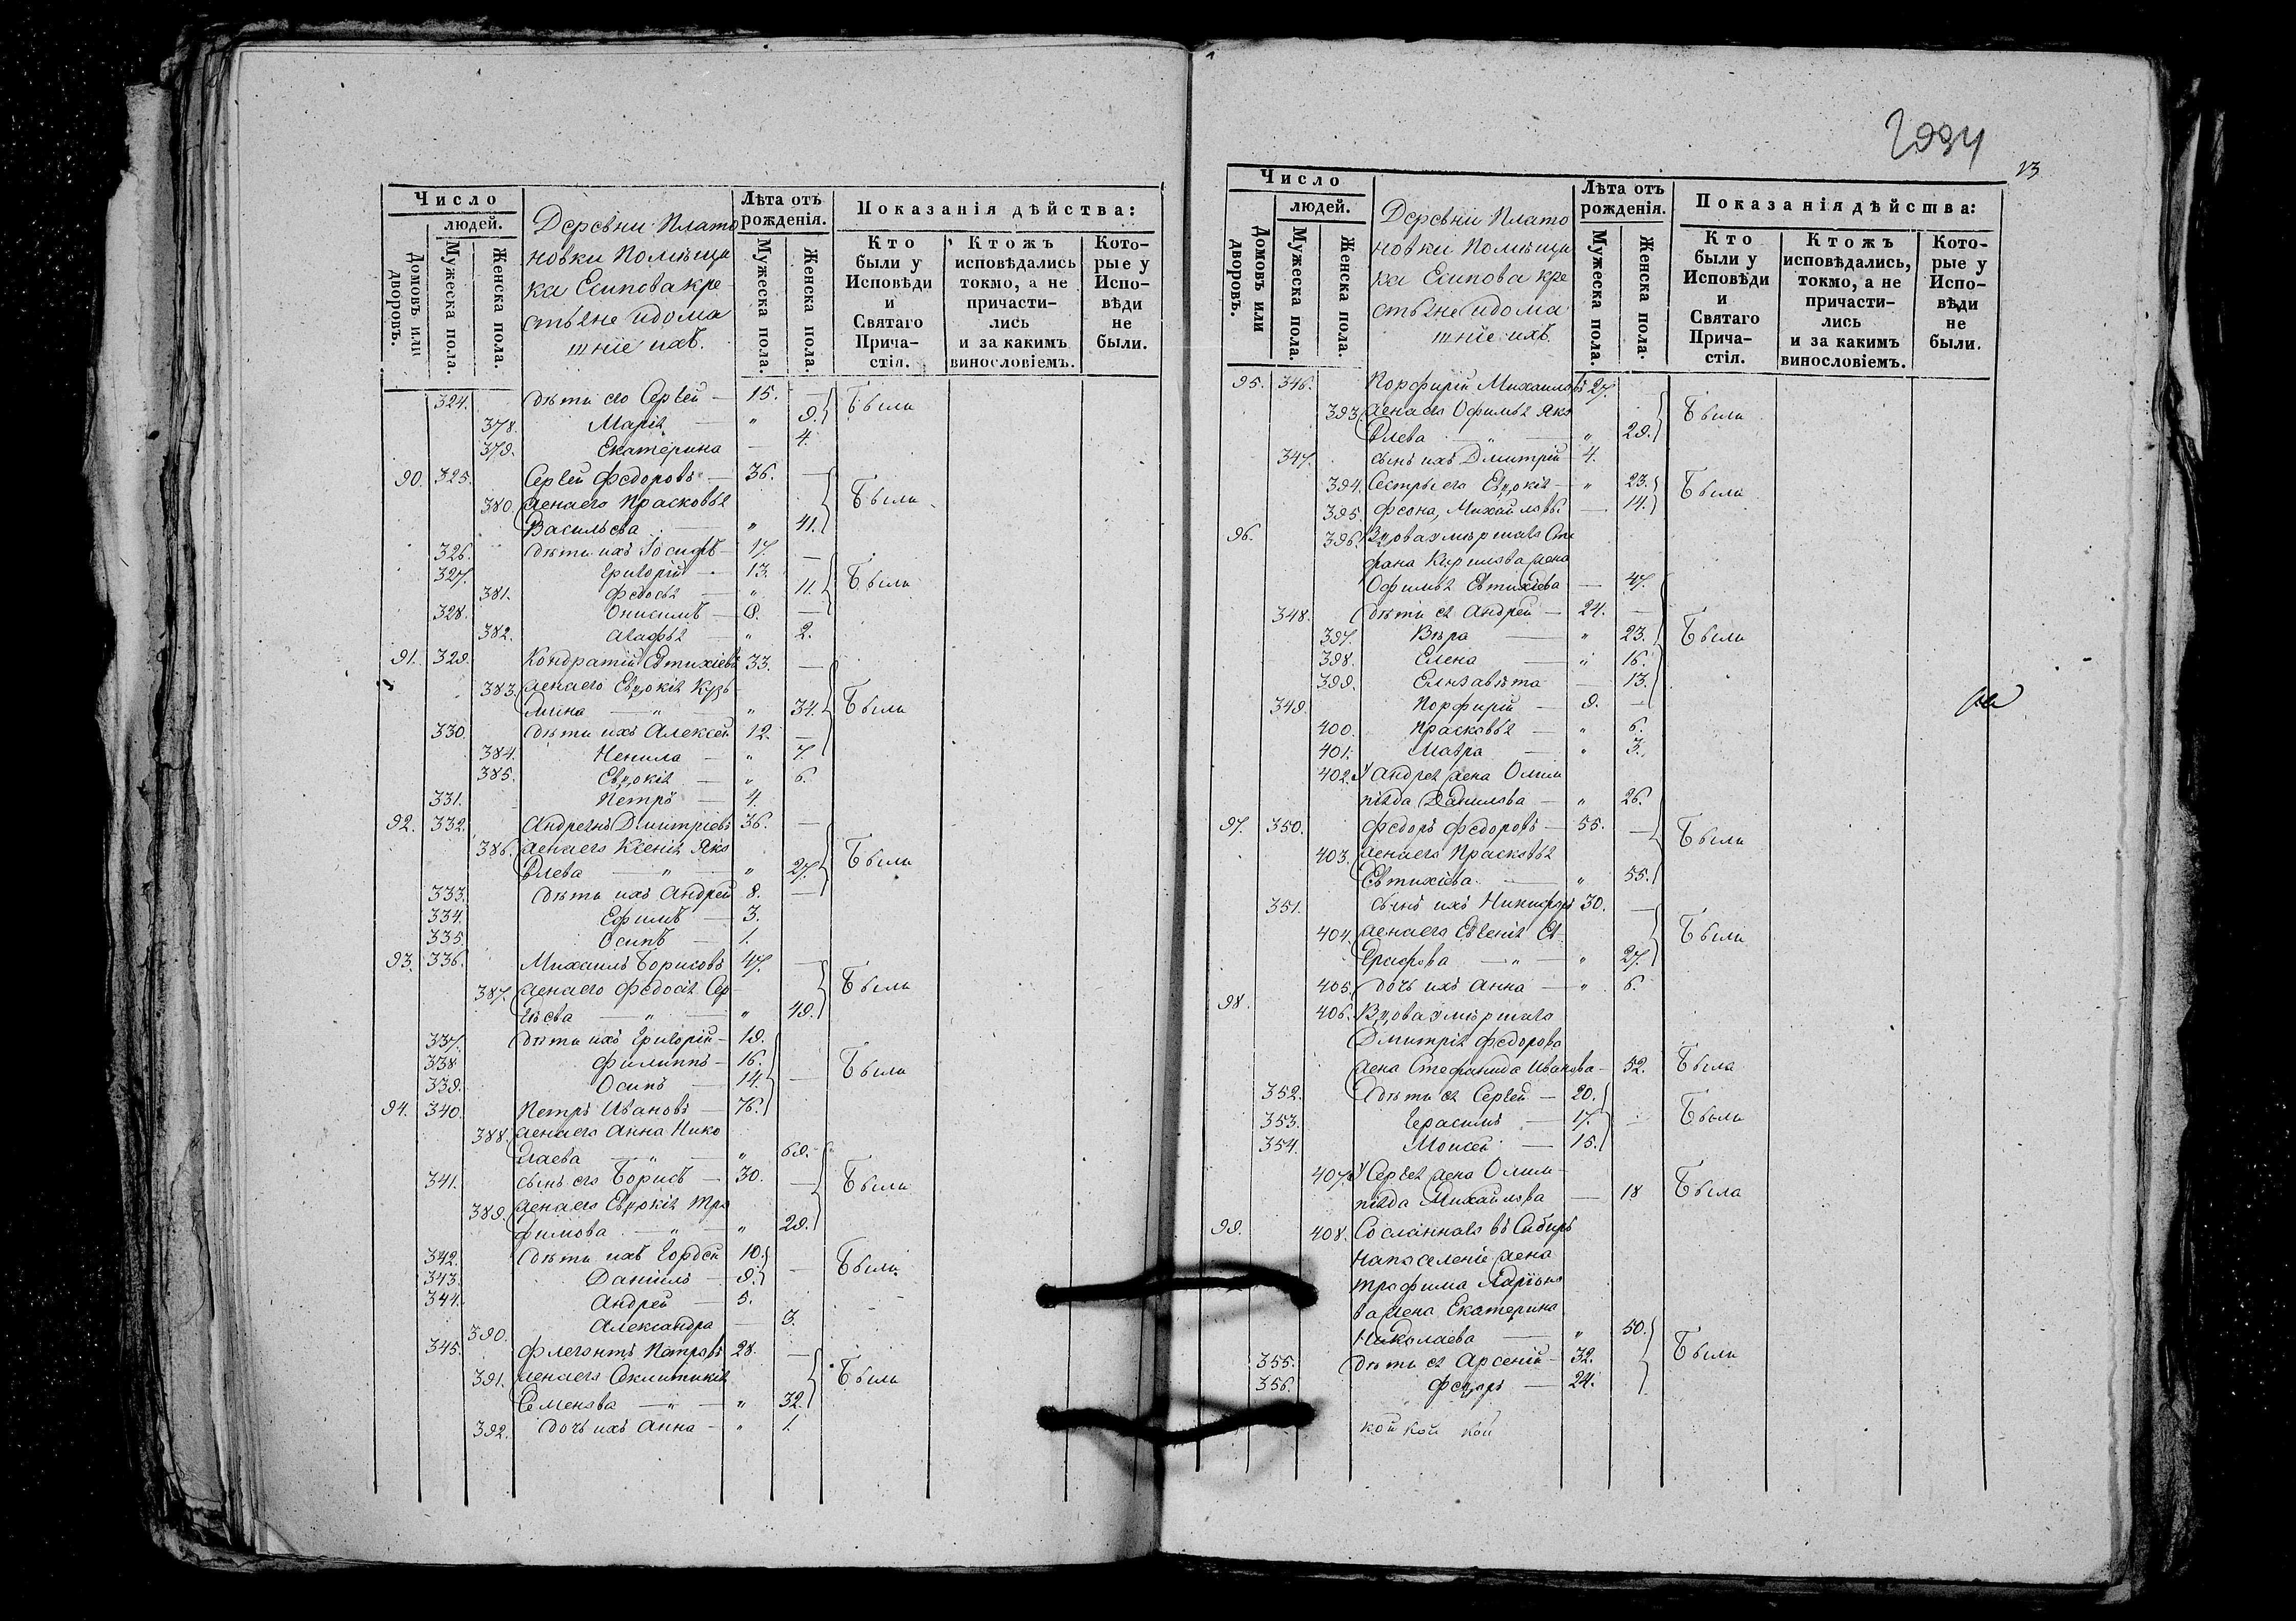 Число
людей.
Домовъ или дворовъ.
Мужеска пола.
Женска пола.
Деревни Плато
новки Помѣщи
ка Есипова кре
стьяне и дома
шніе ихъ.
Лѣта отъ рожденія.
Мужеска пола.
Женска пола.
Показанія дѣйства:
Кто были у Исповѣди и Святаго Прича- стія.
Ктожъ исповѣдались токмо, а не причасти- лись и за какимъ винословіемъ.
Кото- рые у Испо- вѣди не были.
324. дѣти его Сергей — 15. — Были
378. Марія — " 9.
379. Екатерина — 4.
90. 325. Сергей Федоровъ — 36. —
380. жена его Прасковья Были
Васильева — " 41.
326. дѣти ихъ Іосифъ — 17. —
327. Григорій — 13. Были
381. Федосья — " 11.
328. Онисимъ — 8. —
382. Агафья — " 2.
91. 329. Кондратій Евтихіевъ 33. —
383. жена его Евдокія Кузь
мина — " — " 34. Были
330. дѣти ихъ Алексей 12. —
384. Ненила — " 7.
385. Евдокія — " 6.
331. Петръ — 4.
92. 332. Андреянъ Дмитріевъ 36. —
386. жена его Ксенія Яко
влева — " — " 27. Были
333. дѣти ихъ Андрей 8. —
334. Ефимъ — 3.
335. Осипъ — 1.
93. 336. Михаилъ Борисовъ 47. —
387. жена его Федосія Сер Были
гѣева — " — " 49.
337. дѣти ихъ Григорій — 19.
338 Филиппъ — 16. Были
339. Осипъ — 14. —
94. 340. Петръ Ивановъ — 76.
388. жена его Анна Нико
лаева — " — " 69.
341. сынъ его Борисъ — 30. — Были
389. жена его Евдокія Тро
фимова — " — " 29.
342. дѣти ихъ Гордей 10.
343. Даніилъ — 9. — Были
344. Андрей — 5.
390. Александра — 3.
345. Флегонтъ Петровъ 28. —
391. жена его Секлитикія Были
Семенова — " — " 32.
392. дочь ихъ Анна — " 1.
13
Число
людей.
Домовъ или дворовъ.
Мужеска пола.
Женска пола.
Деревни Плато
новки Помѣщи
ка Есипова кре
стьяне и дома
шніе ихъ.
Лѣта отъ рожденія.
Мужеска пола.
Женска пола.
Показанія дѣйства:
Кто были у Исповѣди и Святаго Прича- стія.
Ктожъ исповѣдались, токмо, а не причасти- лись и за какимъ винословіемъ.
Кото- рые у Испо- вѣди не были.
95. 346. Порфирій Михаиловъ 27. —
393. жена его Офимья Яко Были
влева — " — " 29.
347. сынъ ихъ Дмитрій 4.
394. Сестры его Евдокія — " 23. Были
395. Феона, Михайловы — 14.
96. 396. Вдова умершаго Сте
фана Кирилова жена
Офимья Евтихіева — 47.
348. дѣти ея Андрей — 24. —
397. Вѣра — " 23. Были
398. Елена — " 16.
399. Елизавѣта — 13.
349. Порфирій — 9. —
400. Прасковья — " 6.
401. Мавра — " 3.
402. У Андрея жена Олим
піяда Данилова — " 26.
97. 350. Федоръ Федоровъ — 55. — Были
403. жена его Прасковья
Евтихіева — " 55.
351. сынъ ихъ Никифоръ 30. —
404. жена его Евгенія Ев Были
графова — " — " 27.
405. дочь ихъ Анна — " 6.
98. 406. Вдова умершаго
Дмитрія Федорова
жена Стефанида Иванова — 52. Была
352. дѣти ея Сергей — 20.
353. Герасимъ — 17. — Были
354. Моисей — 15.
407. У Сергея жена Олим
піяда Михайлова — 18 Была
99. 408. Сосланнаго въ Сибирь
на поселеніе жена
Трофима Ларіоно
ва жена Екатерина
Николаева — " 50.
355. дѣти ея Арсеній — 32. Были
356. Федоръ — 24.
кой кой кой